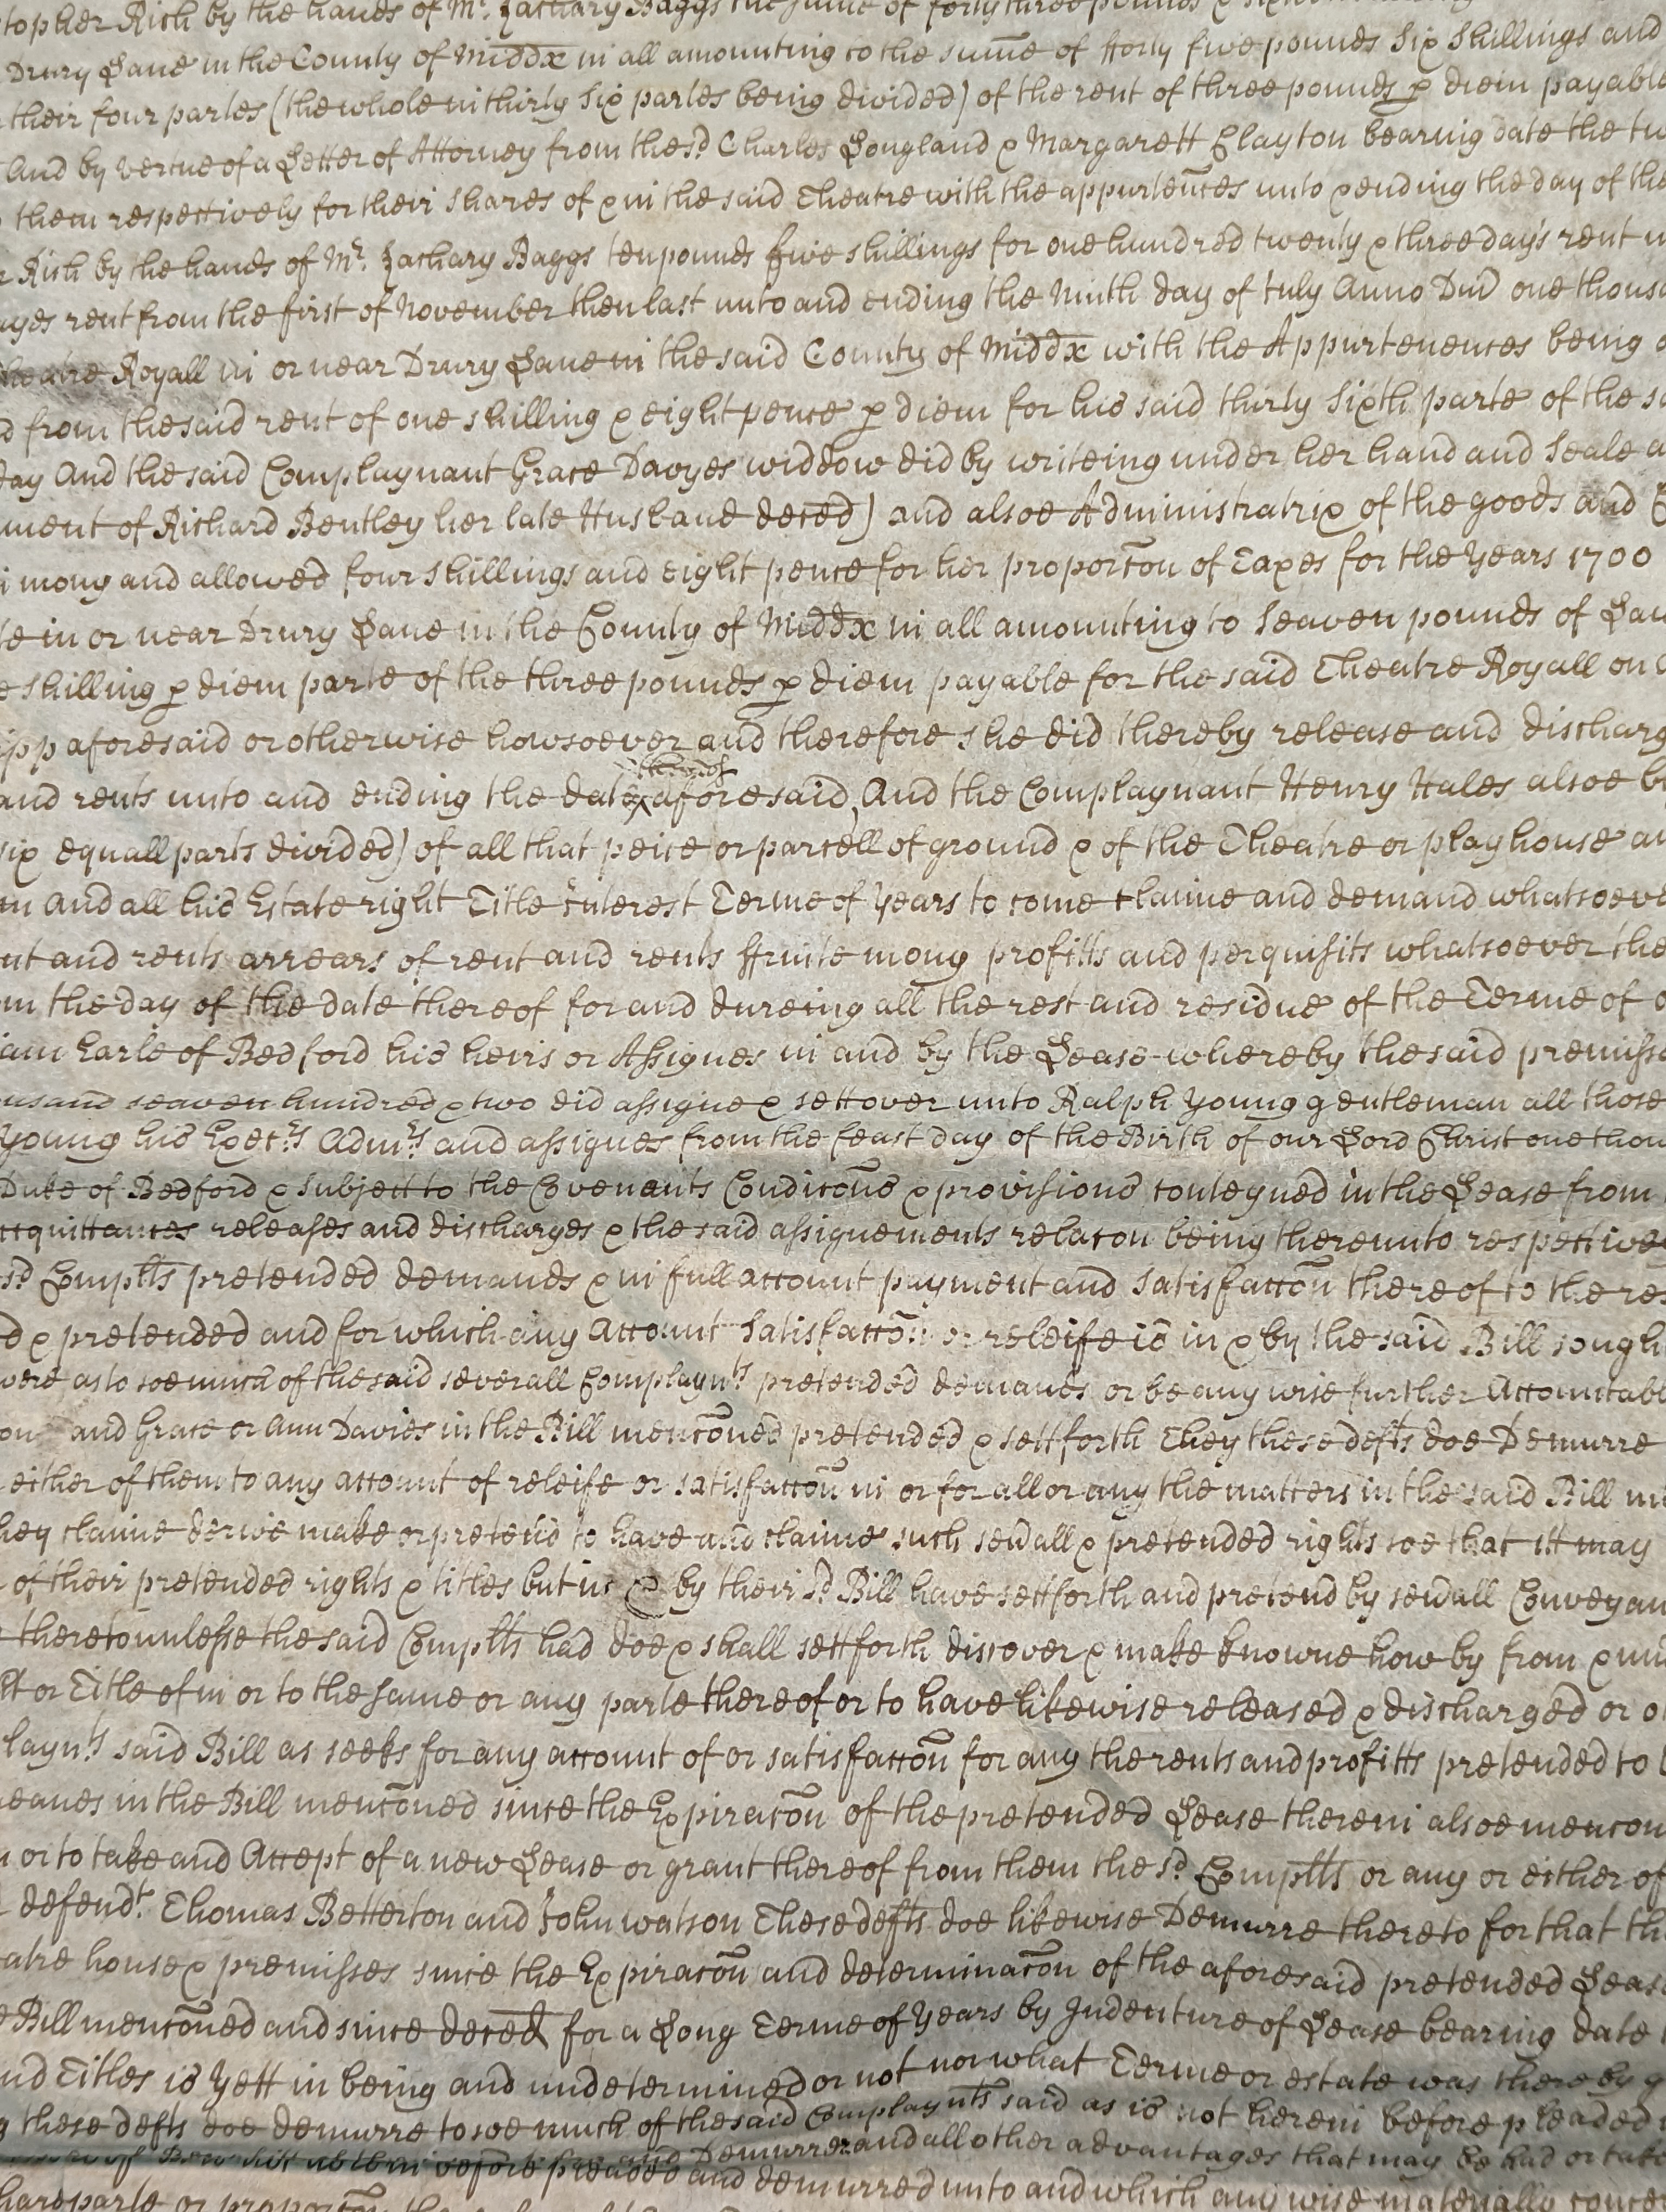 topher Rich by the hands of Mr. Zachary Baggs the sume of forty three pounds
Drury Lane in the County of Middx in all amounting to the sume of fforty five pounds six shillings and
their four partes (the whole in thirty six partes being divided) of the rent of three pounds p diem payable
And by vertue of a Letter of Attorney from the sd. Charles Longland & Margarett Clayton bearing date the tw
them respectively for their shares of & in the said Theatre with the appurtences unto & ending the day of the
Rich by the hands of Mr. Zachary Baggs ten pounds five shillings for one hundred twenty & three day's rent
ayes rent from the first of November then last unto and ending the Ninth day of July Anno Dni one thous
Theatre Royall in or near Drury Lane in the said County of Middx with the Appurtenences being
d from the said rent of one shilling & eight pence p diem for his said thirty sixth parte of the
day And the said Complaynant Grace Davyes widdow did by writeing under her hand and Seale
ment of Richard Bentley her late Husband deced) and alsoe Administratrix of the goods and
mony and allowed four shillings and eight pence for her proporcon of Taxes for the Years 1700
te in or near Drury Lane in the County of Middx in all amounting to Seaven pounds of Law
e shilling p diem parte of the three pounds p diem payable for the said Theatre Royall on
ipp aforesaid or otherwise howsoever and therefore she did thereby release and discharg
thereof
and rents unto and ending the date aforesaid, And the Complaynant Henry Hales alsoe b
six equall parts divided) of all that peice or parcell of ground & of the Theatre or playhouse an
m and all his Estate right Title Interest Terme of Years to come claime and demand whatsoeve
nt and rents arrears of rent and rents ffruite mony profitts and perquisits whatsoever the
m the day of the date thereof for and dureing all the rest and residue of the Terme of
iam Earle of Bedford his heirs or Assignes in and by the Lease whereby the said premiss
ousand seaven hundred & two did assigne & sett over unto Ralph Young gentleman all those
Young his Execrs. Admrs. and assignes from the feast day of the Birth of our Lord Christ one thou
Duke of Bedford & Subject to the Covenants Condicons & provisions conteyned in the Lease from
acquittances releases and discharges & the said assignements relacon being thereunto respective
sd. Complts pretended demands & in full account payment and satisfaccon thereof to the res
d & pretended and for which any Account satisfaccon or releife is in & by the said Bill sough
were as to soe much of the said severall Complaynts pretended demands or be any wise further Accountabl
and Grace or Ann Davies in the Bill mencōned pretended & settforth They these defts doe Demurre
either of them to any account of releife or satisfaccon in or for all or any the matters in the said Bill
hey claime derive make or pretend to have and claime such sevall & pretended rights soe that itt may
of their pretended rights & titles but in & by their sd. Bill have settforth and pretend by sevall Conveyan
thereto unlesse the said Complts had doe & shall settforth discover & make knowne how by from &
or Title of in or to the same or any parte thereof or to have likewise released & discharged or
laynts said Bill as seeks for any account of or satisfaccon for any the rents and profitts pretended to
in the Bill mencōned since the Expiracon of the pretended Lease therein alsoe mencon
or to take and Accept of a new Lease or grant thereof from them the sd. Complts or any or either of
defendt. Thomas Betterton and John Watson These defts doe likewise Demurre thereto for that th
atre house & premisses since the Expiracon and determinacon of the aforesaid pretended Leas
Bill mencōned and since deced for a Long Terme of Years by Indenture of Lease bearing date
nd Titles is Yett in being and undetermined or not nor what Terme or estate was thereby
these defts doe demurre to soe much of the said Complaynts said as is not herein before pleaded
Demurrer and all other advantages that may be had or take
before pleaded and demurred unto and which any wise materially
parte or proporcon